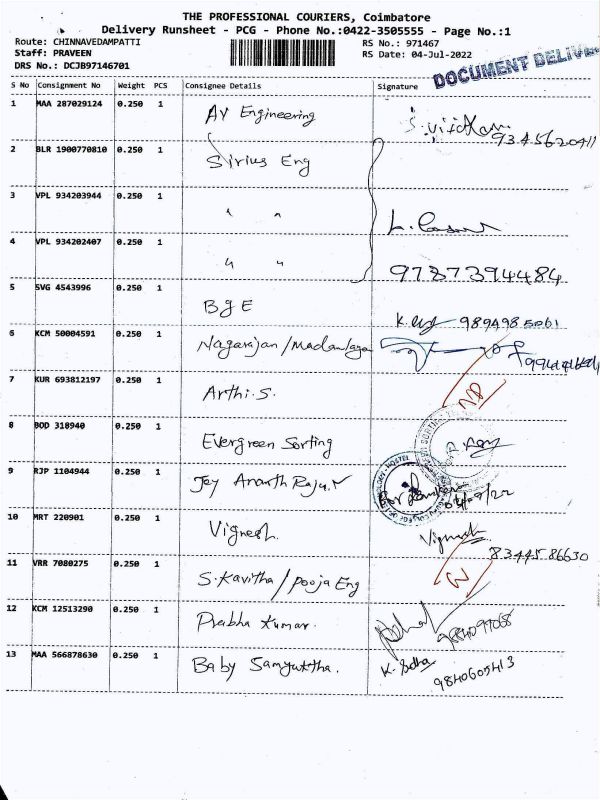 THE PROFESSIONAL COURIERS, Coimbatore
Delivery Runsheet - PCG - Phone No.:0422-3505555 - Page No.:1
Route: CHINNAVEDAMPATTI RS No.: 971467
Staff: PRAVEEN RS Date: 04-Jul-2022
DRS No.: DCJB97146701
DOCUMENT DELIV
S No Consignment No Weight PCS Consignee Details Signature
1 MAA 287029124 0.250 1 AV Engineering
9345620411
2 BLR 1900770810 0.250 1 Sirius Eng
3 VPL 934203944 0.250 1 " "
4 VPL 934202407 0.250 1 " "
9787394484
5 SVG 4543996 0.250 1 BGE
9894985061
6 KCM 50004591 0.250 1 Nagarajan /
7 KUR 693812197 0.250 1 Arthi.S.
ND
8 BOD 318940 0.250 1 Evergreen Sorting
9 RJP 1104944 0.250 1 Jey Ananth Raju.V
10 MRT 220901 0.250 1 Vignesh.
Vignesh
8344586630
11 VRR 7080275 0.250 1 S.Kavitha / Pooja Eng
12 KCM 12513290 0.250 1 Prabha Kumar.
13 MAA 566878630 0.250 1 Baby Samyuktha.
K. Sdha
9840605413